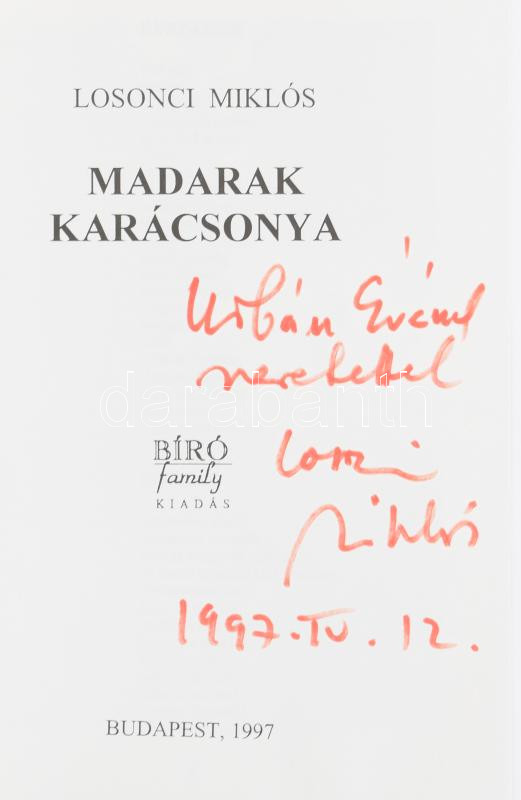 LOSONCI MIKLÓS
MADARAK
KARÁCSONYA
Urbán Évának
szeretettel
darabanth
BÍRÓ
family
KIADÁS
Losonci
Miklós
1997. IV. 12.
BUDAPEST, 1997